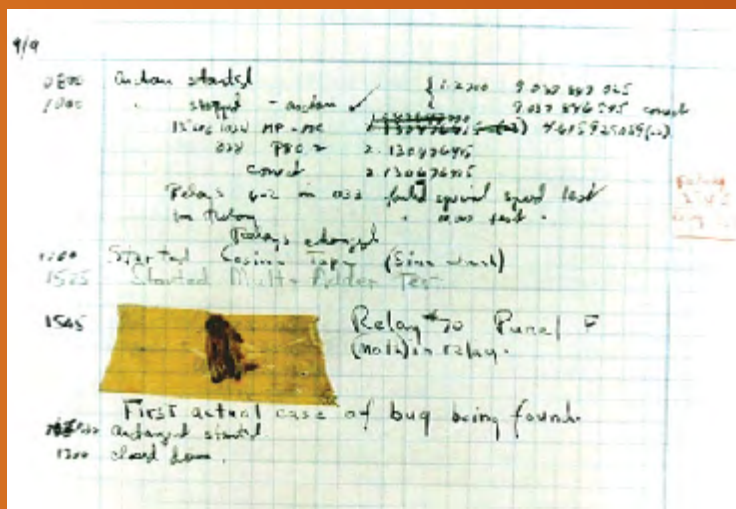 9/9
0800 started
1000 stopped - ✓
9.037 847 025
9.037 846 995 correct
MP - MC 4.615925059(-2)
033 PRO 2 2.130476415
correct 2.130676415
Relays 6-2 in 033 failed special speed test
in Relay test .
Relays changed
1100 Started Cosine Tape (Sine check)
1525 Started Mult + Adder Test
1545 Relay #70 Panel F
(Moth) in relay.
First actual case of bug being found.
started.
1700 closed down.